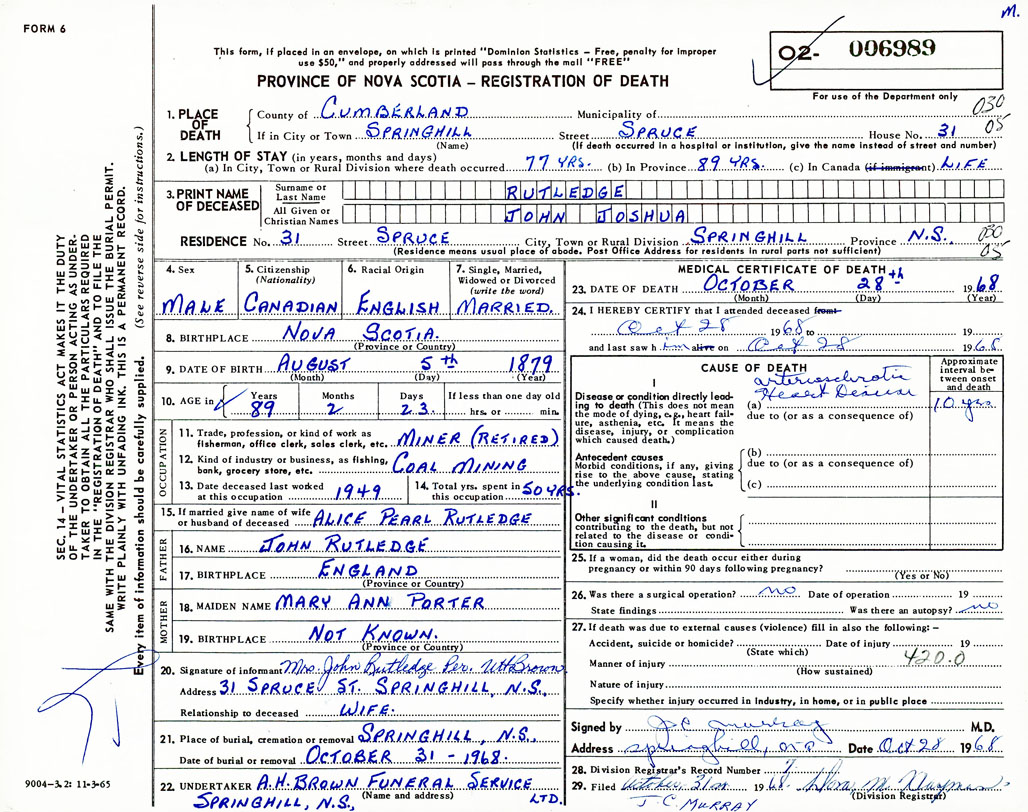 M.
FORM 6
This form, if placed in an envelope, on which is printed "Dominion Statistics – Free, penalty for improper
use $50," and properly addressed will pass through the mail "FREE"
PROVINCE OF NOVA SCOTIA – REGISTRATION OF DEATH
02- 006989
For use of the Department only
1. PLACE OF DEATH
County of CUMBERLAND Municipality of 030
If in City or Town SPRINGHILL Street SPRUCE House No. 31 05
(Name) (If death occurred in a hospital or institution, give the name instead of street and number)
2. LENGTH OF STAY (in years, months and days)
(a) In City, Town or Rural Division where death occurred 77 YRS. (b) In Province 89 YRS. (c) In Canada (if immigrant) LIFE
3. PRINT NAME OF DECEASED
Surname or Last Name RUTLEDGE
All Given or Christian Names JOHN JOSHUA
RESIDENCE No. 31 Street SPRUCE City, Town or Rural Division SPRINGHILL Province N.S. 030
(Residence means usual place of abode. Post Office Address for residents in rural parts not sufficient) 05
4. Sex MALE
5. Citizenship (Nationality) CANADIAN
6. Racial Origin ENGLISH
7. Single, Married, Widowed or Divorced (write the word) MARRIED.
8. BIRTHPLACE NOVA SCOTIA.
(Province or Country)
9. DATE OF BIRTH AUGUST 5th 1879
(Month) (Day) (Year)
10. AGE in Years 89 Months 2 Days 23. If less than one day old
hrs. or min.
OCCUPATION
11. Trade, profession, or kind of work as
fishermen, office clerk, sales clerk, etc. MINER (RETIRED)
12. Kind of industry or business, as fishing,
bank, grocery store, etc. COAL MINING
13. Date deceased last worked
at this occupation 1949
14. Total yrs. spent in
this occupation 50 YRS.
15. If married give name of wife
or husband of deceased ALICE PEARL RUTLEDGE
FATHER
16. NAME JOHN RUTLEDGE
17. BIRTHPLACE ENGLAND
(Province or Country)
MOTHER
18. MAIDEN NAME MARY ANN PORTER
19. BIRTHPLACE NOT KNOWN.
(Province or Country)
20. Signature of informant Mrs. John Rutledge Per. WHBrown
Address 31 SPRUCE ST. SPRINGHILL, N.S.,
Relationship to deceased WIFE.
21. Place of burial, cremation or removal SPRINGHILL, N.S.,
Date of burial or removal OCTOBER 31 - 1968.
22. UNDERTAKER A.H. BROWN FUNERAL SERVICE
(Name and address) LTD.
SPRINGHILL, N.S.,
MEDICAL CERTIFICATE OF DEATH
23. DATE OF DEATH OCTOBER 28th 1968
(Month) (Day) (Year)
24. I HEREBY CERTIFY that I attended deceased from
Oct 28 1968 to 19
and last saw him alive on Oct 28 1968
CAUSE OF DEATH
Approximate interval between onset and death
I
Disease or condition directly leading to death (This does not
mean the mode of dying, e.g., heart failure, asthenia, etc. It means the
disease, injury, or complication
which caused death.)
arteriosclerotic
(a) Heart Disease 10 yrs.
due to (or as a consequence of)
Antecedent causes
Morbid conditions, if any, giving
rise to the above cause, stating
the underlying condition last.
(b)
due to (or as a consequence of)
(c)
II
Other significant conditions
contributing to the death, but not
related to the disease or condition
causing it.
25. If a woman, did the death occur either during
pregnancy or within 90 days following pregnancy?
(Yes or No)
26. Was there a surgical operation? no Date of operation 19
State findings Was there an autopsy? no
27. If death was due to external causes (violence) fill in also the following: –
Accident, suicide or homicide? Date of injury 19
(State which)
Manner of injury 420.0
(How sustained)
Nature of injury
Specify whether injury occurred in industry, in home, or in public place
Signed by J.C. Murray M.D.
Address Springhill, N.S. Date Oct 28 1968
28. Division Registrar's Record Number
29. Filed October 31st 1968
(Division Registrar)
J.C. MURRAY
SEC. 14 – VITAL STATISTICS ACT MAKES IT THE DUTY
OF THE UNDERTAKER OR PERSON ACTING AS UNDER-
TAKER TO OBTAIN ALL THE PARTICULARS REQUIRED
IN THE "REGISTRATION OF DEATH" AND TO FILE THE
SAME WITH THE DIVISION REGISTRAR WHO SHALL ISSUE THE BURIAL PERMIT.
WRITE PLAINLY WITH UNFADING INK. THIS IS A PERMANENT RECORD.
Every item of information should be carefully supplied. (See reverse side for instructions.)
9004-3.2: 11-3-65